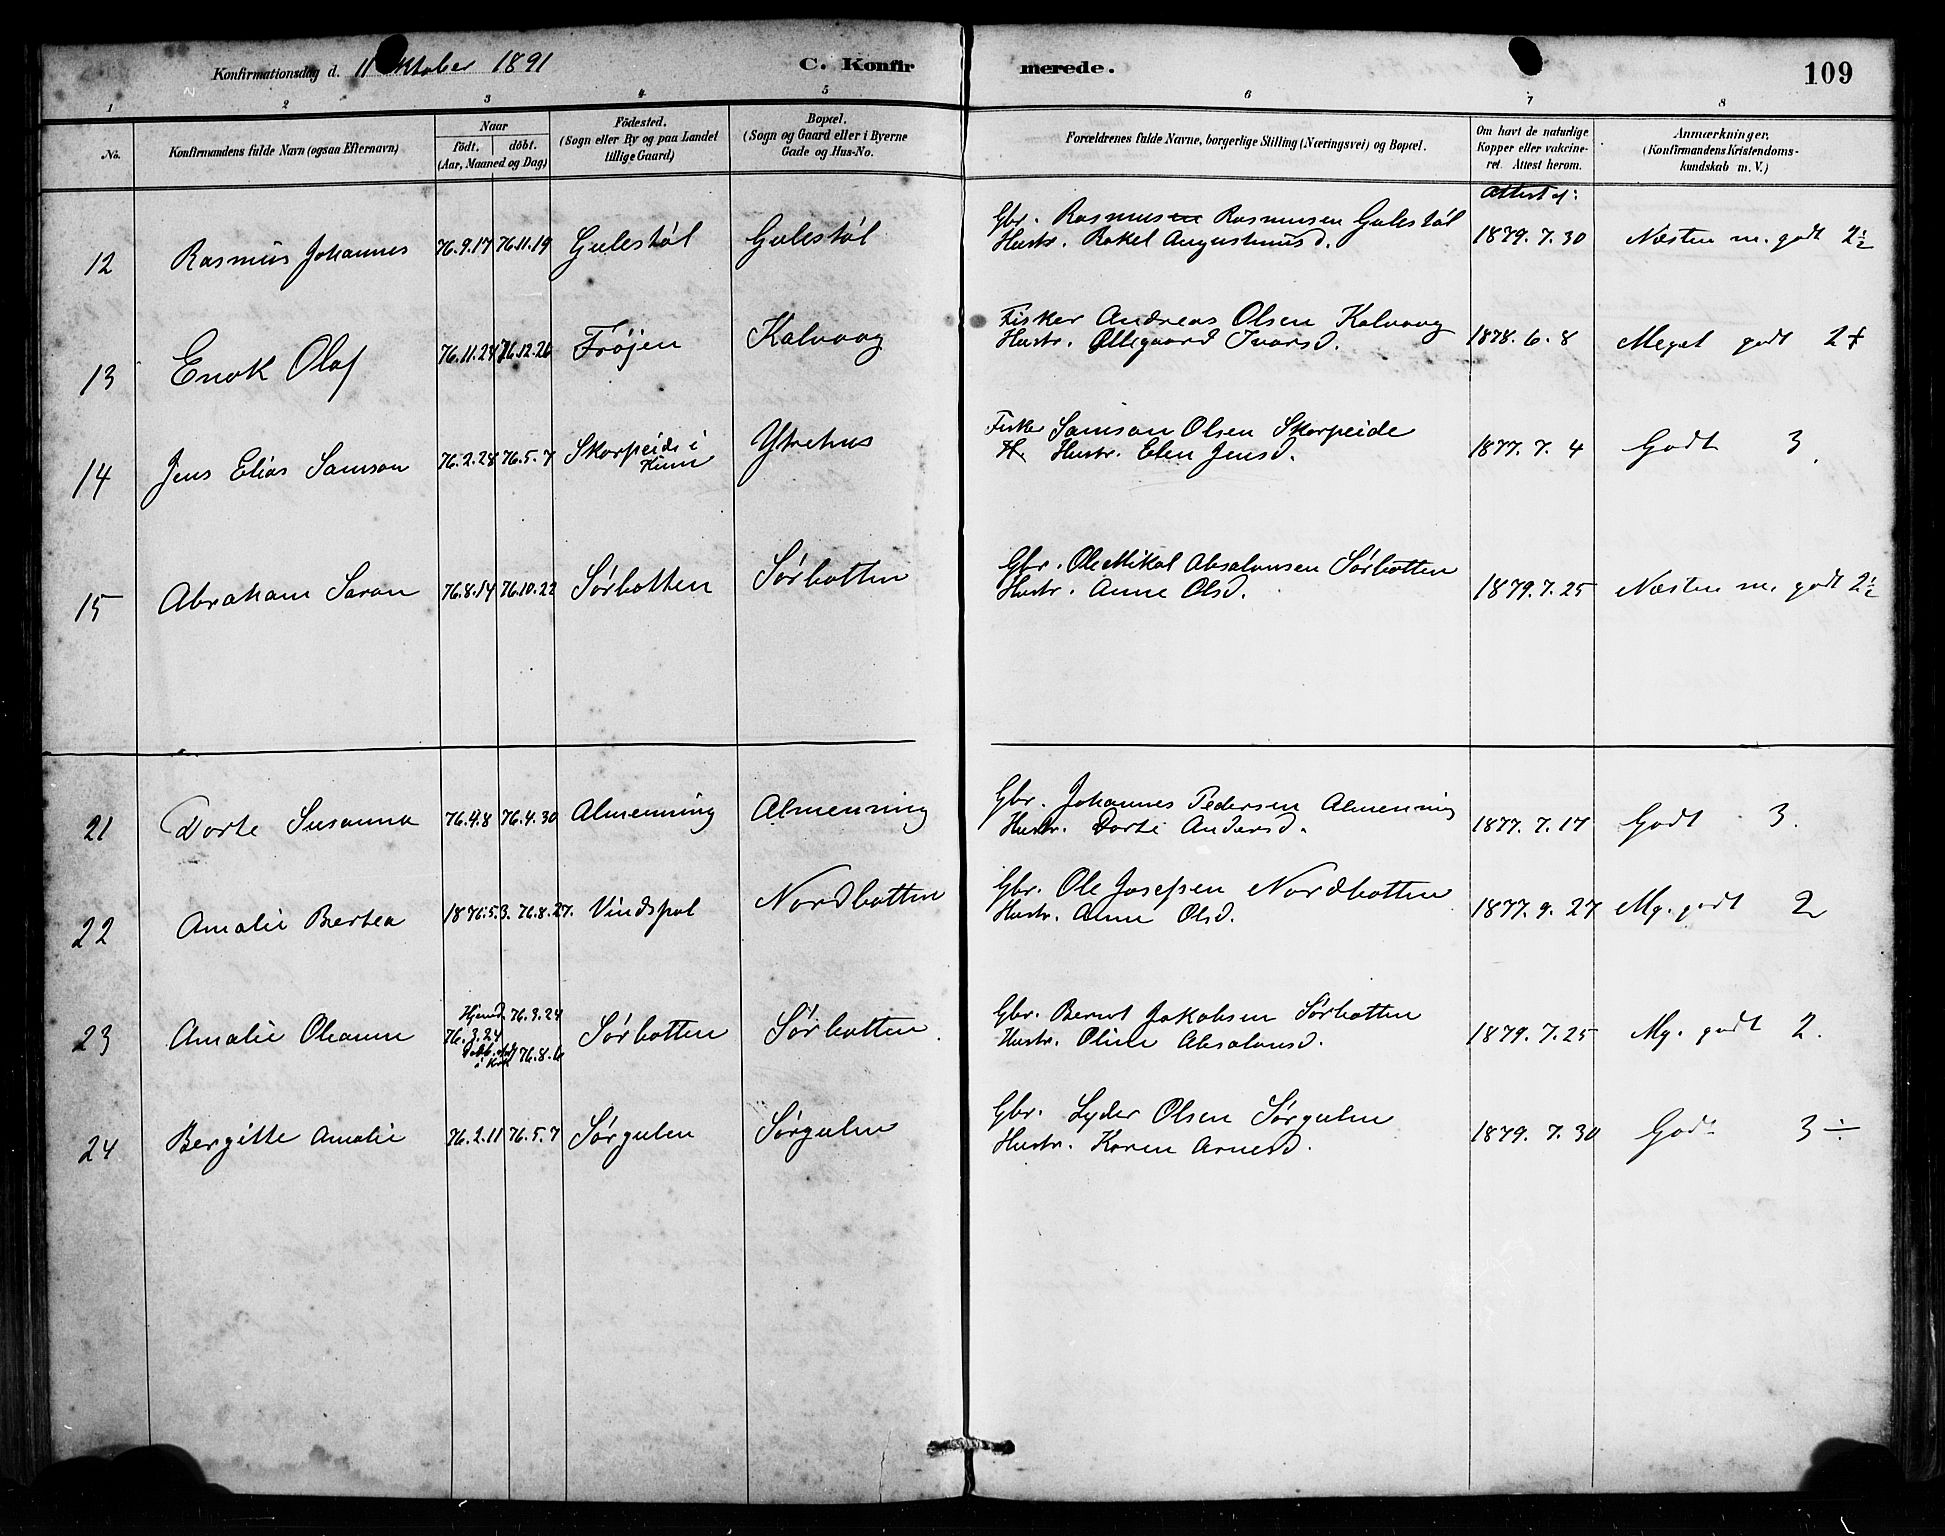 Konfirmationsdag d. 11 Oktober 1891
C. Konfirmerede.
109
1 2 3 4 5 6 7 8
No.
Konfirmandens fulde Navn (ogsaa Efternavn)
Naar
födt. döbt.
(Aar, Maaned og Dag)
Födested.
(Sogn eller By og paa Landet
tillige Gaard)
Bopæl.
(Sogn og Gaard eller i Byerne
Gade og Hus-No.
Forældrenes fulde Navne, borgerlige Stilling (Næringsvei) og Bopæl.
Om havt de naturlige
Kopper eller vakcine-
ret. Attest herom.
Anmærkninger.
(Konfirmandens Kristendoms-
kundskab m. V.)
Attest af:
12 Rasmus Johannes 76.9.17 76.11.19 Gulestøl Gulestøl
Gbr. Rasmusen Rasmusen Gulestøl
Hustr. Rakel Augustinusd.
1879.7.30 Næsten m. godt 2½
13 Enok Olaf 76.11.24 76.12.26 Frøjen Kalvaag
Fisker Andreas Olsen Kalvaag
Hustr. Øllegaard Ivarsd.
1878.6.8 Meget godt 2+
14 Jens Elias Samson 76.2.28 76.5.7 Skorpeide i
Kinn
Ytrehus
Fisker Samson Olsen Skorpeide
H. Hustr. Elen Jensd.
1877.7.4 Godt 3.
15 Abraham Saron 76.8.14 76.10.22 Sørbotten Sørbotten
Gbr. Ole Mikal Absalonsen Sørbotten
Hustr. Anne Olsd.
1879.7.25 Næsten m. godt 2½
21 Dorte Susanna 76.4.8 76.4.30 Almenning Almenning
Gbr. Johannes Pedersen Almenning
Hustr. Dorte Andersd.
1877.7.17 Godt 3.
22 Amalie Bertea 1876.5.3. 76.8.27. Vindspol Nordbotten
Gbr. Ole Josefsen Nordbotten
Hustr. Anne Olsd.
1877.9.27 Mg. godt 2
23 Amalie Oleanne
Hjemd. 76.3.24
76.3.24
i Kirk 76.8.6
Sørbotten Sørbotten
Gbr. Bernt Jakobsen Sørbotten
Hustr. Oline Absalonsd.
1879.7.25 Mg. godt 2.
24 Bergitte Amalie 76.2.11 76.5.7 Sørgulen Sørgulen
Gbr. Lyder Olsen Sørgulen
Hustr. Karen Arnesd.
1879.7.30 Godt 3÷